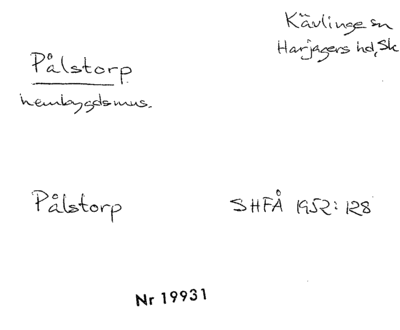 Kävlinge sn
Harjagers hd, Sk
Pålstorp
hembygdsmus.
Pålstorp SHFÅ 1952: 128
Nr 19931